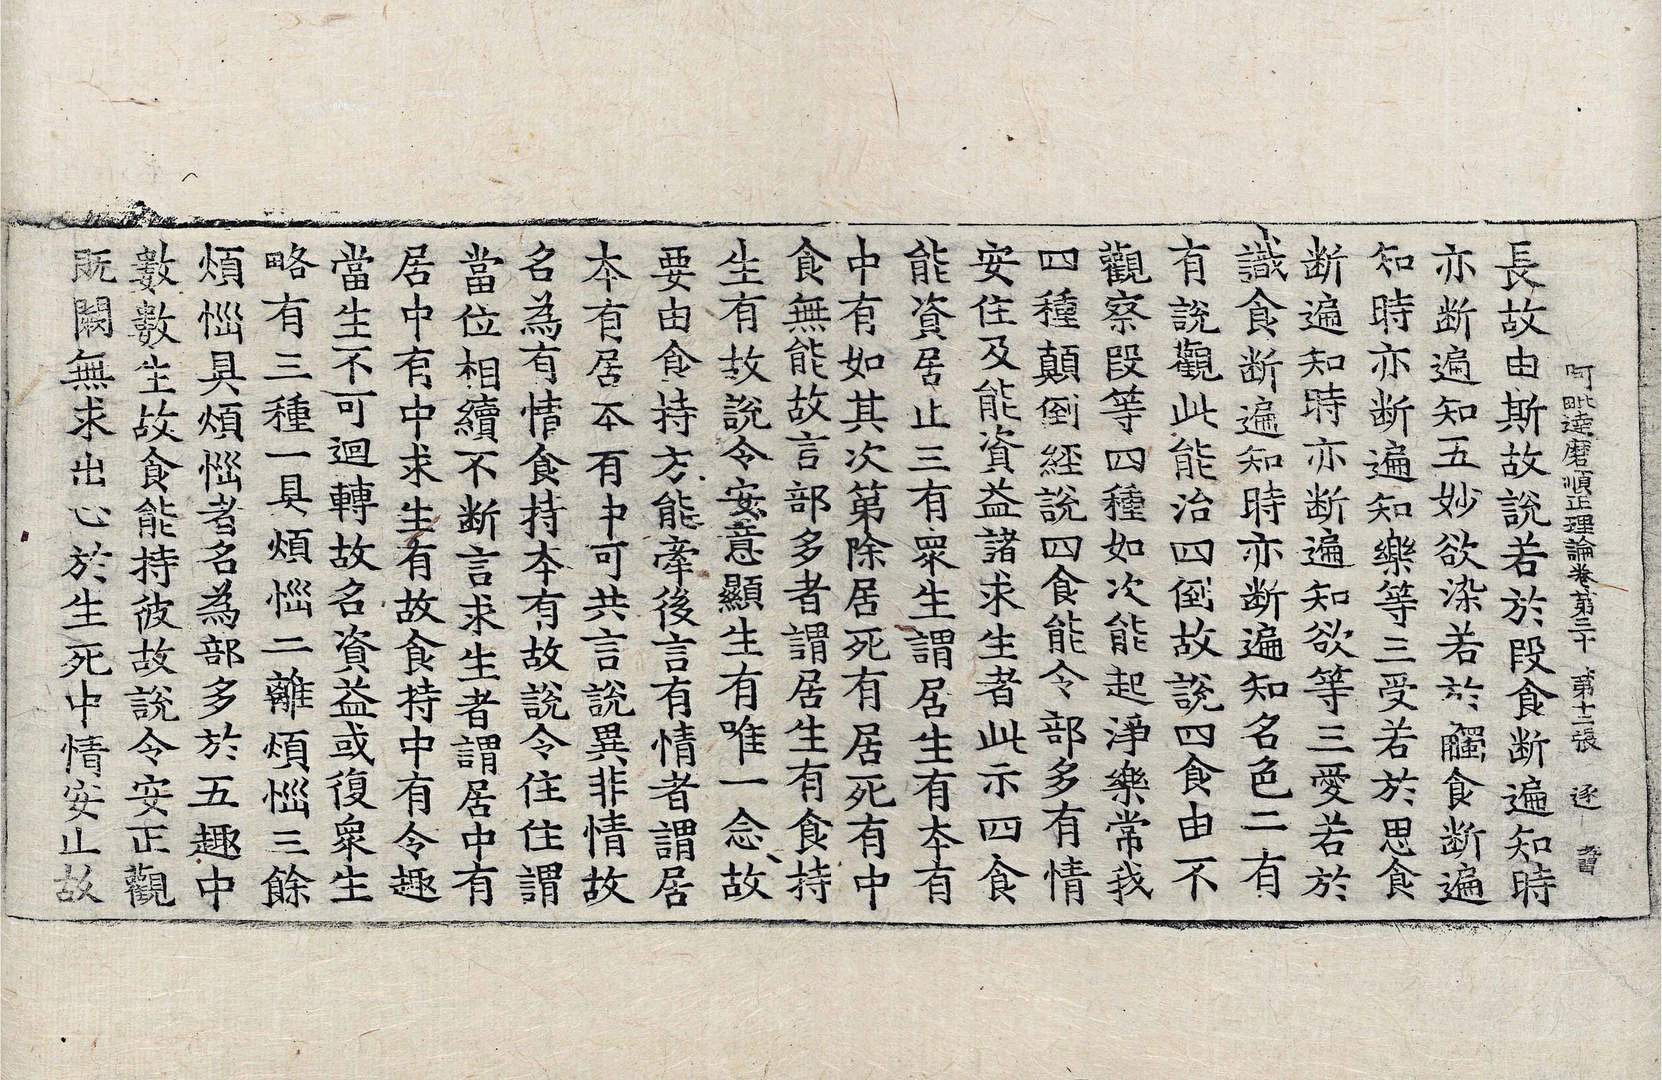 阿毗達磨順正理論卷第三十 第十二張 逐
長故由斯故說若於段食断遍知時
亦断遍知五妙欲染若於觸食断遍
知時亦断遍知樂等三受若於思食
断遍知時亦断遍知欲等三愛若於
識食断遍知時亦断遍知名色二有
有說觀此能治四倒故說四食由不
觀察段等四種如次能起淨樂常我
四種顛倒經說四食能令部多有情
安住及能資益諸求生者此示四食
能資居止三有眾生謂居生有本有
中有如其次第除居死有居死有中
食無能故言部多者謂居生有食持
生有故說令安意顯生有唯一念故
要由食持方能牽後言有情者謂居
本有居本有中可共言說異非情故
名為有情食持本有故說令住住謂
當位相續不断言求生者謂居中有
居中有中求生有故食持中有令趣
當生不可迴轉故名資益或復眾生
略有三種一具煩惱二離煩惱三餘
煩惱具煩惱者名為部多於五趣中
數數生故食能持彼故說令安正觀
既闕無求出心於生死中情安止故